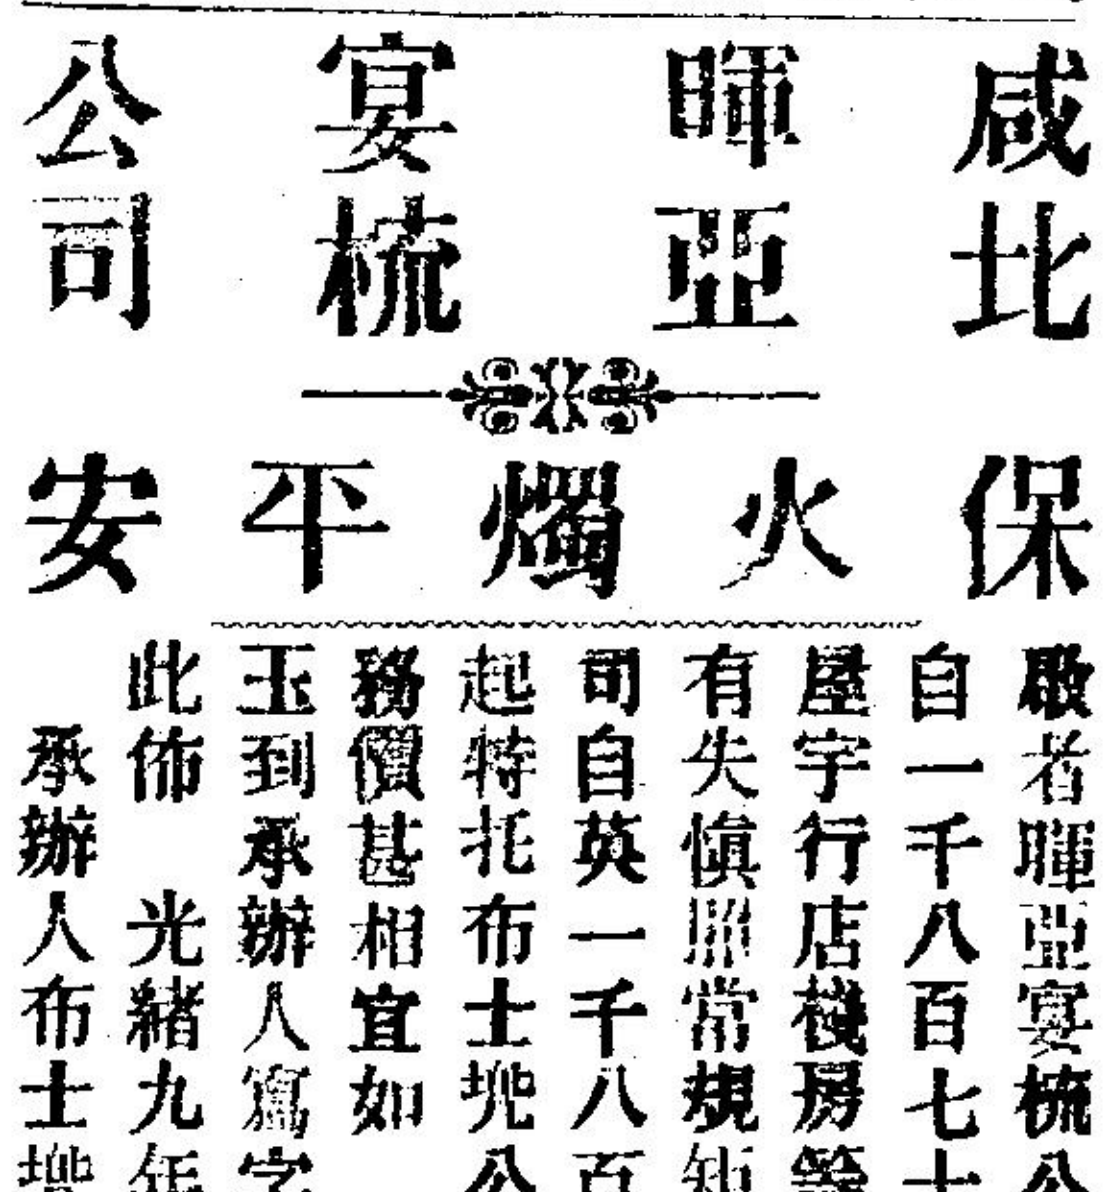 咸北
暉亞
宴梳
公司
保火燭平安
啟者暉亞宴梳公
自一千八百七十
屋宇行店棧房等
有失慎照常規矩
司自英一千八百
起特托布士公
務價甚相宜如
玉到承辦人寫字
此佈 光緒九年
承辦人布士